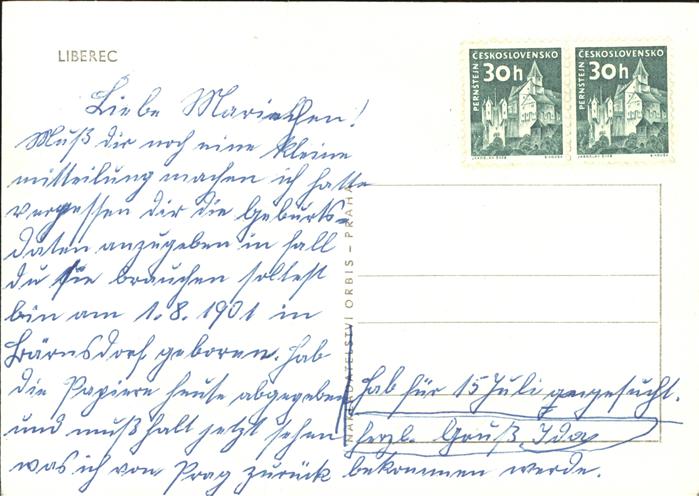 LIBEREC
ČESKOSLOVENSKO
PERNŠTEJN
30h
JAROSLAV ŠVÁB
ČESKOSLOVENSKO
PERNŠTEJN
30h
JAROSLAV ŠVÁB
Liebe Mariechen!
Muß dir noch eine kleine
mitteilung machen ich hatte
vergessen dir die Geburts-
daten anzugeben in fall
du sie brauchen soltest
bin am 1.8.1901 in
Bärnsdorf geboren. Hab
die Papiere heute abgegeben
und muß halt jetzt sehen
was ich von Prag zurück bekommen werde.
Hab für 15 Juli angesucht.
herzl. Gruß, Ida
NAKLADATELSTVÍ ORBIS – PRAHA